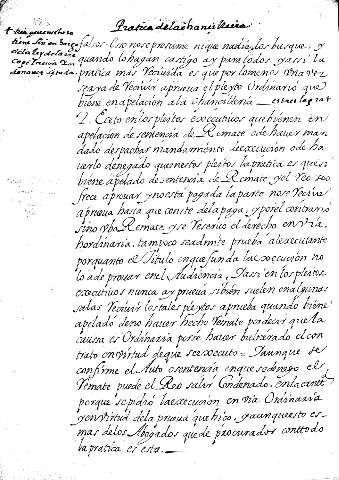 Practica de la chancilleria
falsos Eso no se presume ni que nadie los busque y
quando lo hagan castigo ay para todos y assi la
pratica mas Recivida es que por lo menos una vez
se a de Recivir aprueva el pleyto Ordinario que
biene en apelacion a la Chancilleria
2. Eceto en los pleytos executivos que bienen en
apelacion de sentencia de Remate o de haver man
dado despachar mandamiento de execucion o de ha
verlo denegado que en estos pleytos la pratica es que si
biene apelado de sentencia de Remate y el Reo se o
frece aprovar y no está pagada la parte no se Reciva
aprueva hasta que conste de la paga, y por el contrario
si no ubo Remate, y se Reservo el derecho en via
hordinaria, tampoco se admite prueba al executante
por quanto el Titulo en que funda la execucion no
lo a de provar en el Audiencia, y assi en los pleitos
executivos nunca ay prueva si bien suelen en algunas
salas Recivir los tales pleytos aprueba quando biene
apelado de no haver hecho Remate por decir que la
causa es Ordinaria por se haver
trato en virtud de que se executo = y aunque se
confirme el Auto o sentencia en que se denego el
Remate puede el Reo salir Condenado, en la cantd
porque se pidió la execucion en via Ordinaria
y en virtud de la prueva que hizo, y aunque esto es
mas de los Abogados que de procurador con todo
la pratica es esta